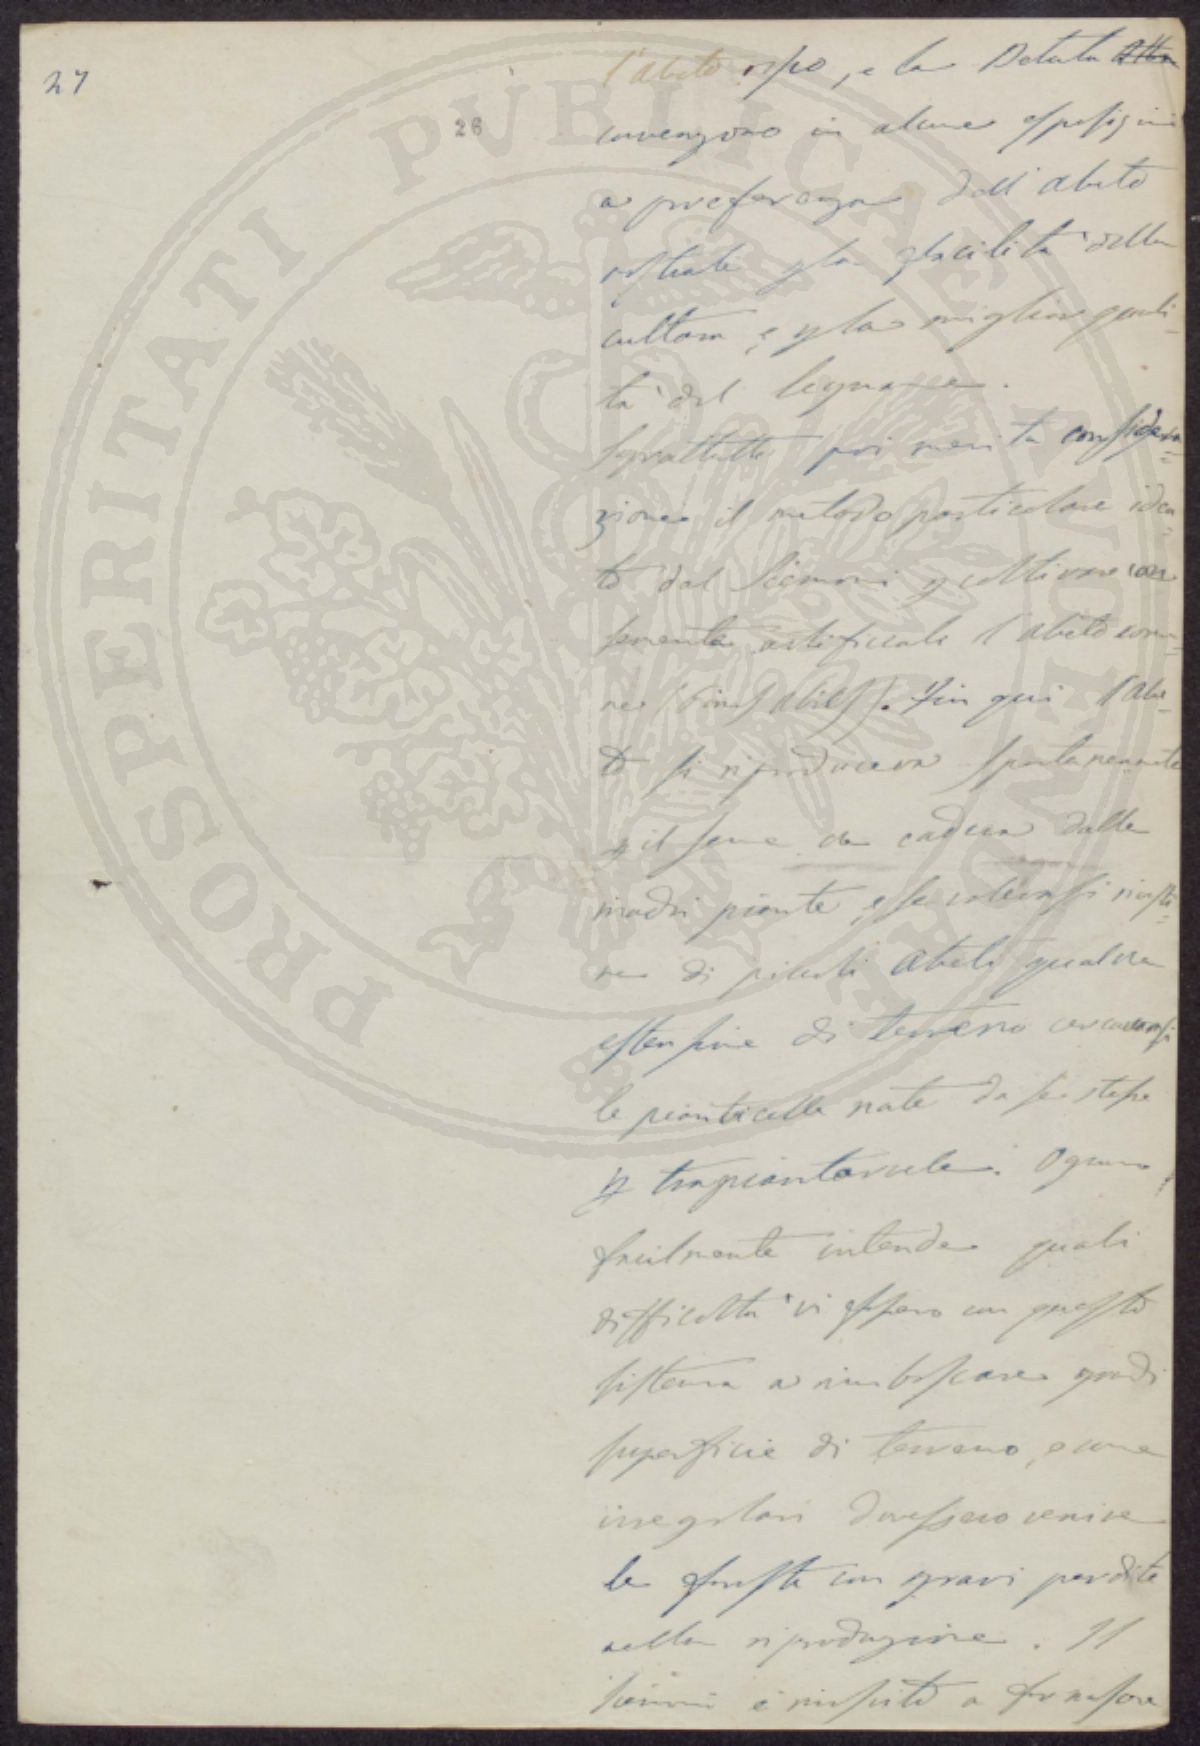 27
26
PROSPERITATI PUBLICAE AUGENDAE
l'abeto rosso, e la Betula
convengono in alcune esposizioni
a preferenza dell'abeto
nostrale p la facilità della
cultura, e p la miglior quali-
tà del legname.
Soprattutto poi merita considera=
zione il metodo particolare idea=
to dal Siemoni p coltivare con
sementa artificiale l'abeto comu=
ne (Pinus abies). Fin qui l'abe=
to si riproduceva spontaneamente
p il seme che cadeva dalle
madri piante, e se volevasi rivesti=
re di piccoli abeti qualche
estensione di terreno cercavansi
le pianticelle nate da se stesse
p trapiantarcele. Ognuno
facilmente intende quali
difficoltà vi fossero con questo
sistema a rimboscare grandi
superficie di terreno, e come
irregolari dovessero venire
le foreste con gravi perdite
nella riproduzione. Il
Siemoni è riuscito a formare